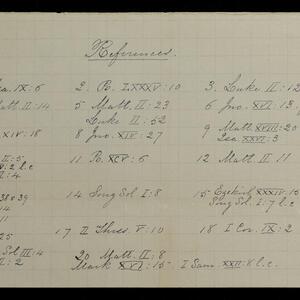 References.
Isa. IX: 6 2. Ps. LXXXV: 10 3. Luke II: 12
Matt. II: 14 5 Matt. II: 23 6 Jno. XVI: 13
Luke II: 52
XIV: 18 8 Jno. XIV: 27 9 Matt. XVIII: 20
Isa. XXVI: 3
II: 5 11 Ps. XCV: 6 12 Matt. II: 11
V: 2 l.c
I: 4
38+39 14 Song Sol. I: 8 15 Ezekiel XXXIV: 15
14 Song Sol. I: 7 l c
11
25 17 II Thess. V: 10 18 I Cor. IX: 2
Sol III: 4 20 Matt. II: 8
II: 2 Mark XVI: 15 I Sam. XXII: 8 l.c.